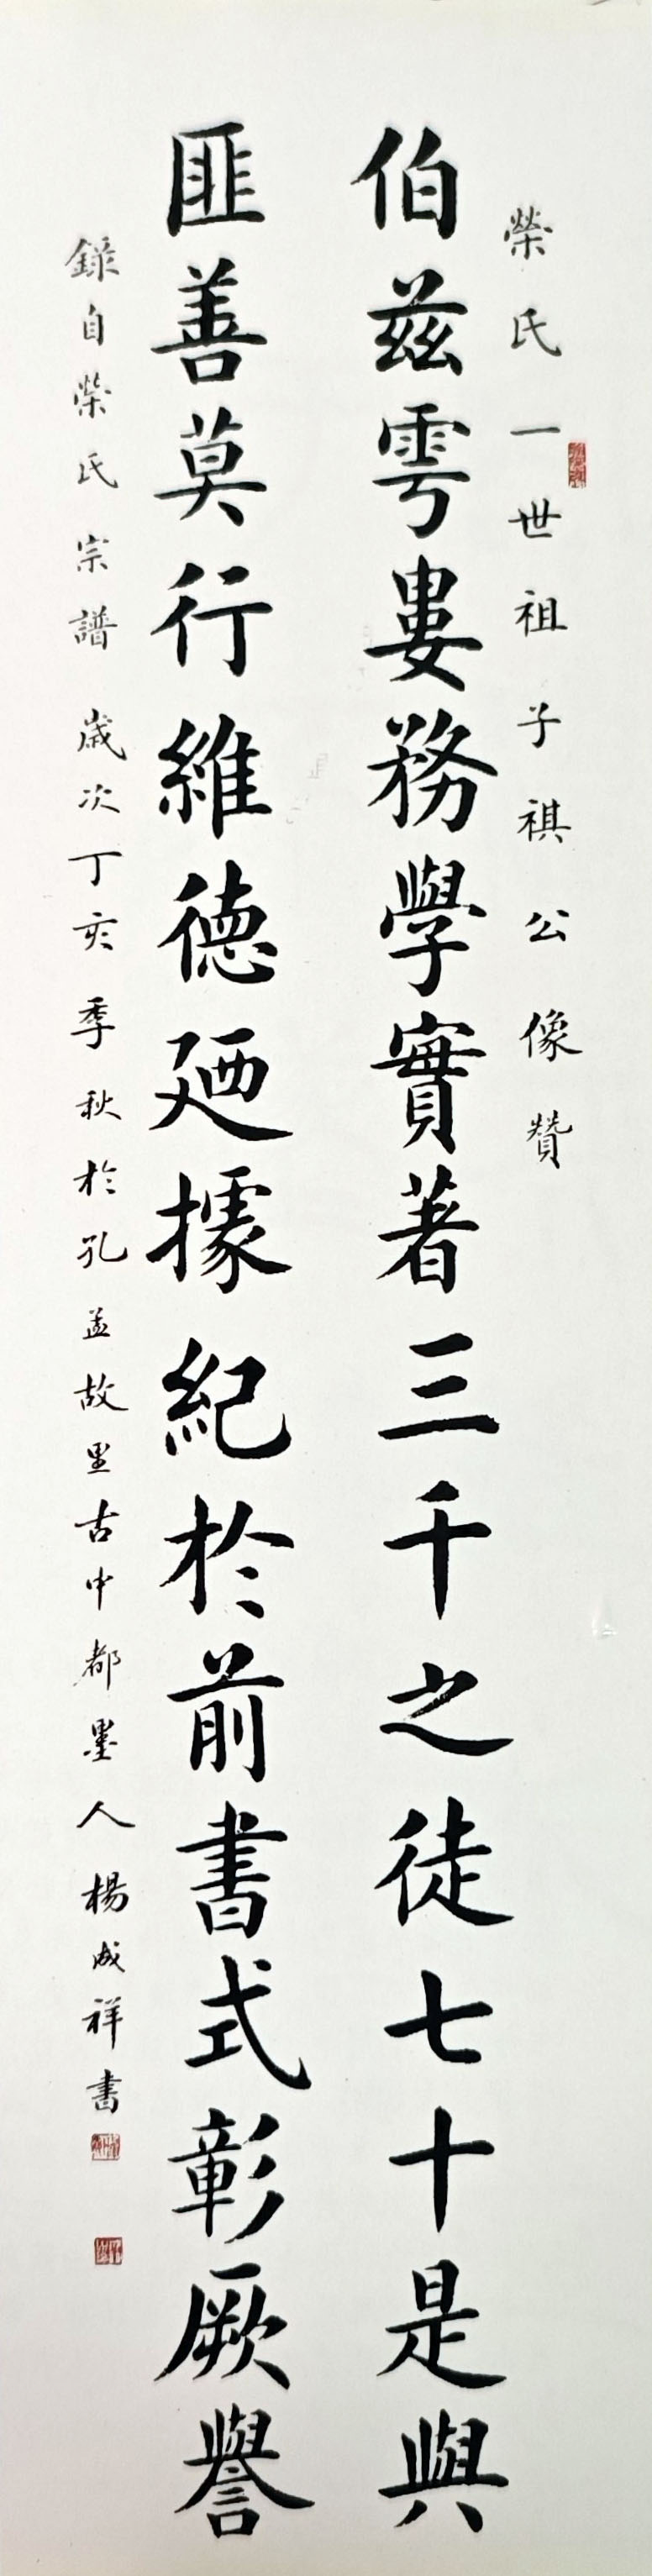 榮氏一世祖子祺公像贊
伯茲雩婁務學實著三千之徒七十是與
匪善莫行維德廼據紀於前書式彰厥譽
錄自榮氏宗譜 歲次丁亥季秋於孔孟故里古中都墨人楊成祥書